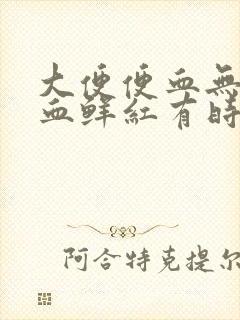 大便便血無
血鲜紅有時
阿合特克提尔